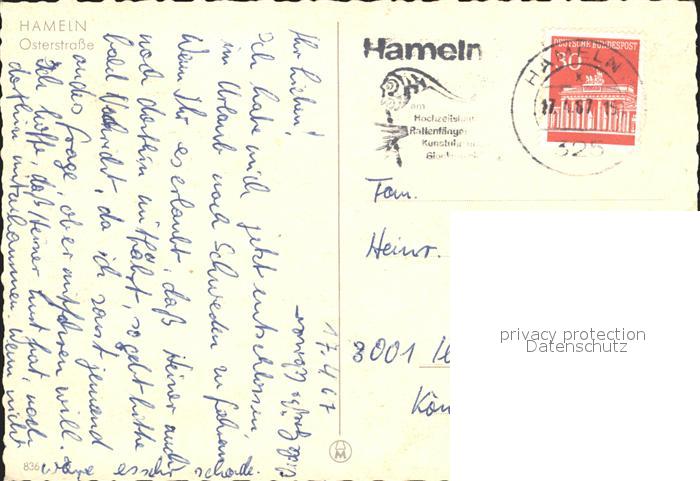 HAMELN
Osterstraße
17.4.67
Ihr Lieben!
Ich habe mich jetzt entschlossen,
im Urlaub nach Schweden zu fahren.
Wenn Ihr es erlaubt, daß Heiner auch
noch dorthin mitfährt, so gebt bitte
bald Nachricht, da ich sonst jemand
anders frage, ob er mitfahren will.
Ich hoffe, daß Heiner Lust hat, noch
dorthin mitzukommen. Wenn nicht
wäre es sehr schade.
Viele Grüße
836
Hameln
am
Hochzeitshaus
Rattenfänger
DEUTSCHE BUNDESPOST
30
HAMELN
17.4.67.15
325
Fam.
Heinr.
3001
privacy protection
Datenschutz